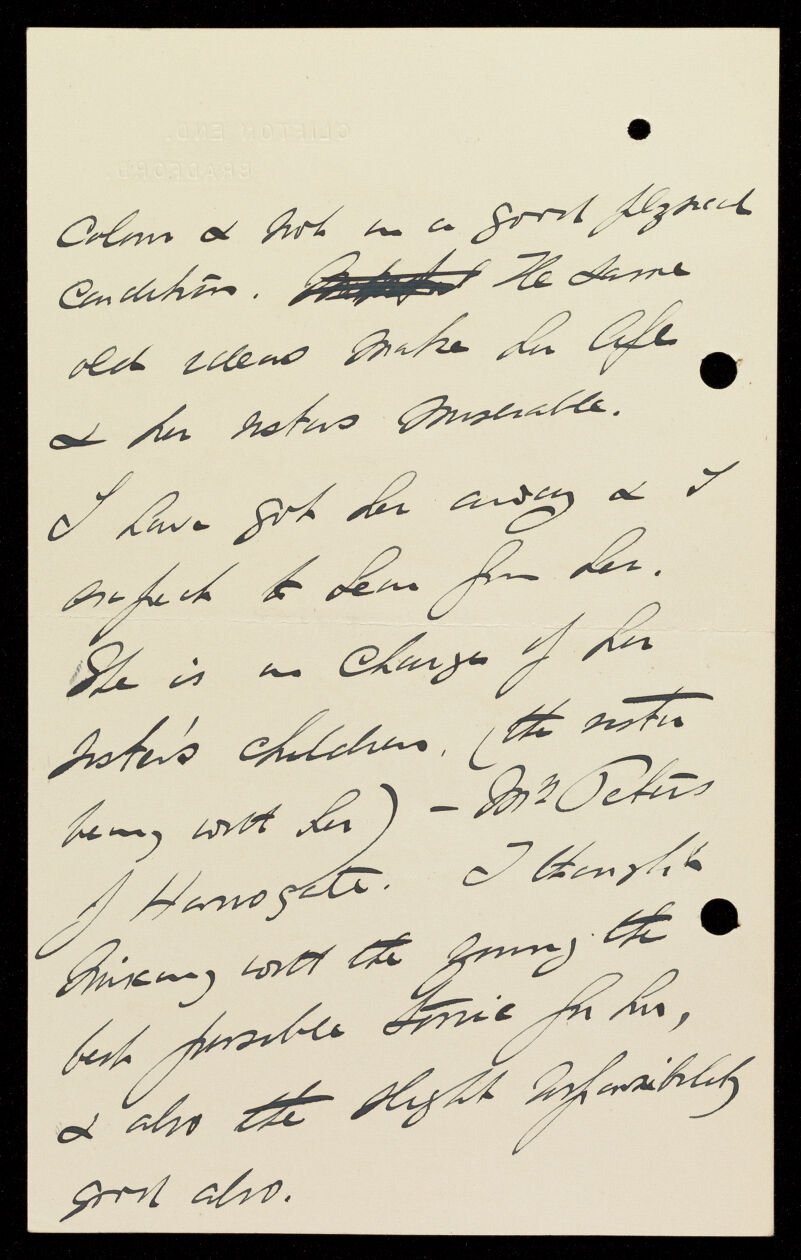 CLIFTON END.
BRADFORD.
Colour & not in a good physical
condition. The same
old ideas make her life
& her sisters miserable.
I have got her away & I
expect to hear from her.
She is in charge of her
sister's children, (the sister
being with her) – Mrs Peters
of Harrogate. I thought
mixing with the young the
best possible tonic for her,
& also the slight responsibility
good also.